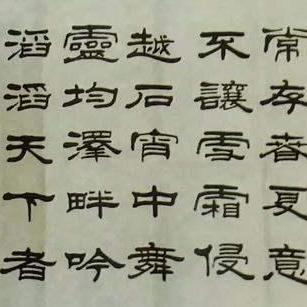 常存春夏意
不讓雪霜侵
越石宵中舞
靈均澤畔吟
滔滔天下者